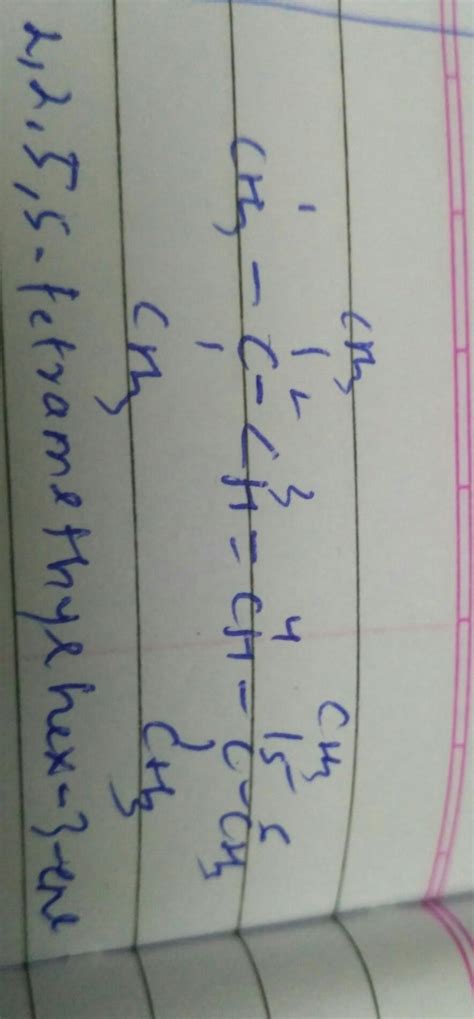 CH3 CH3
1 2 3 4 5 6
CH3 - C - CH = CH - C - CH3
CH3 CH3
2,2,5,5-tetramethyl hex-3-ene